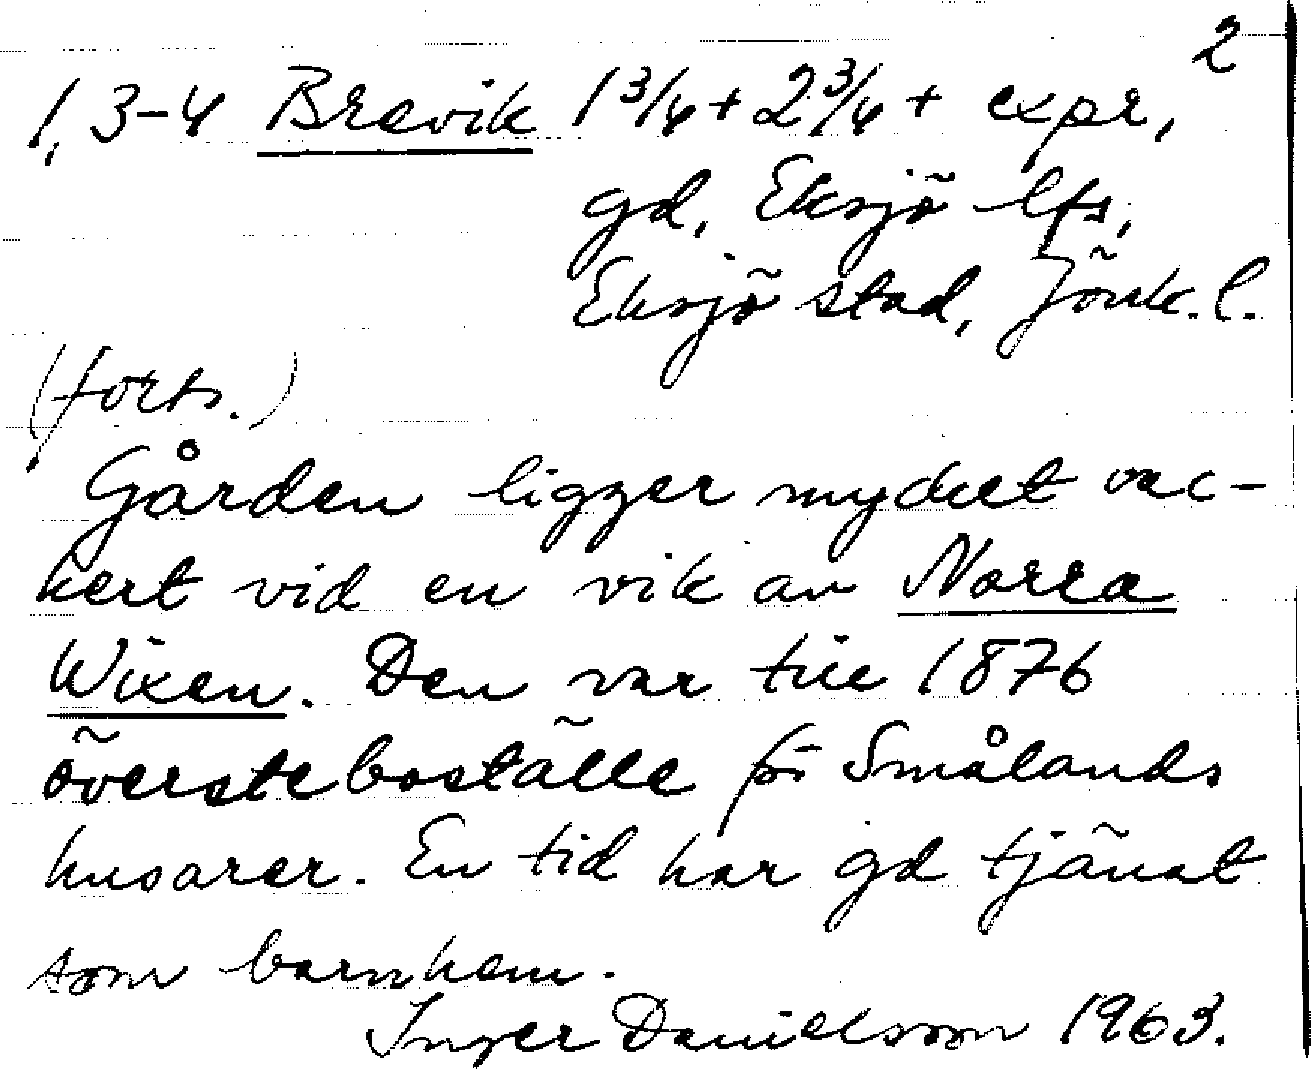 2
1, 3-4 Brevik 1 3/4 + 2 3/4 + expr,
gd, Eksjö lfs,
Eksjö stad, Jönk. l.
(forts.)
Gården ligger mycket vac-
kert vid en vik av Norra
Wixen. Den var till 1876
överste boställe för Smålands
husarer. En tid har gd tjänat
som barnhem.
Inger Danielsson 1963.